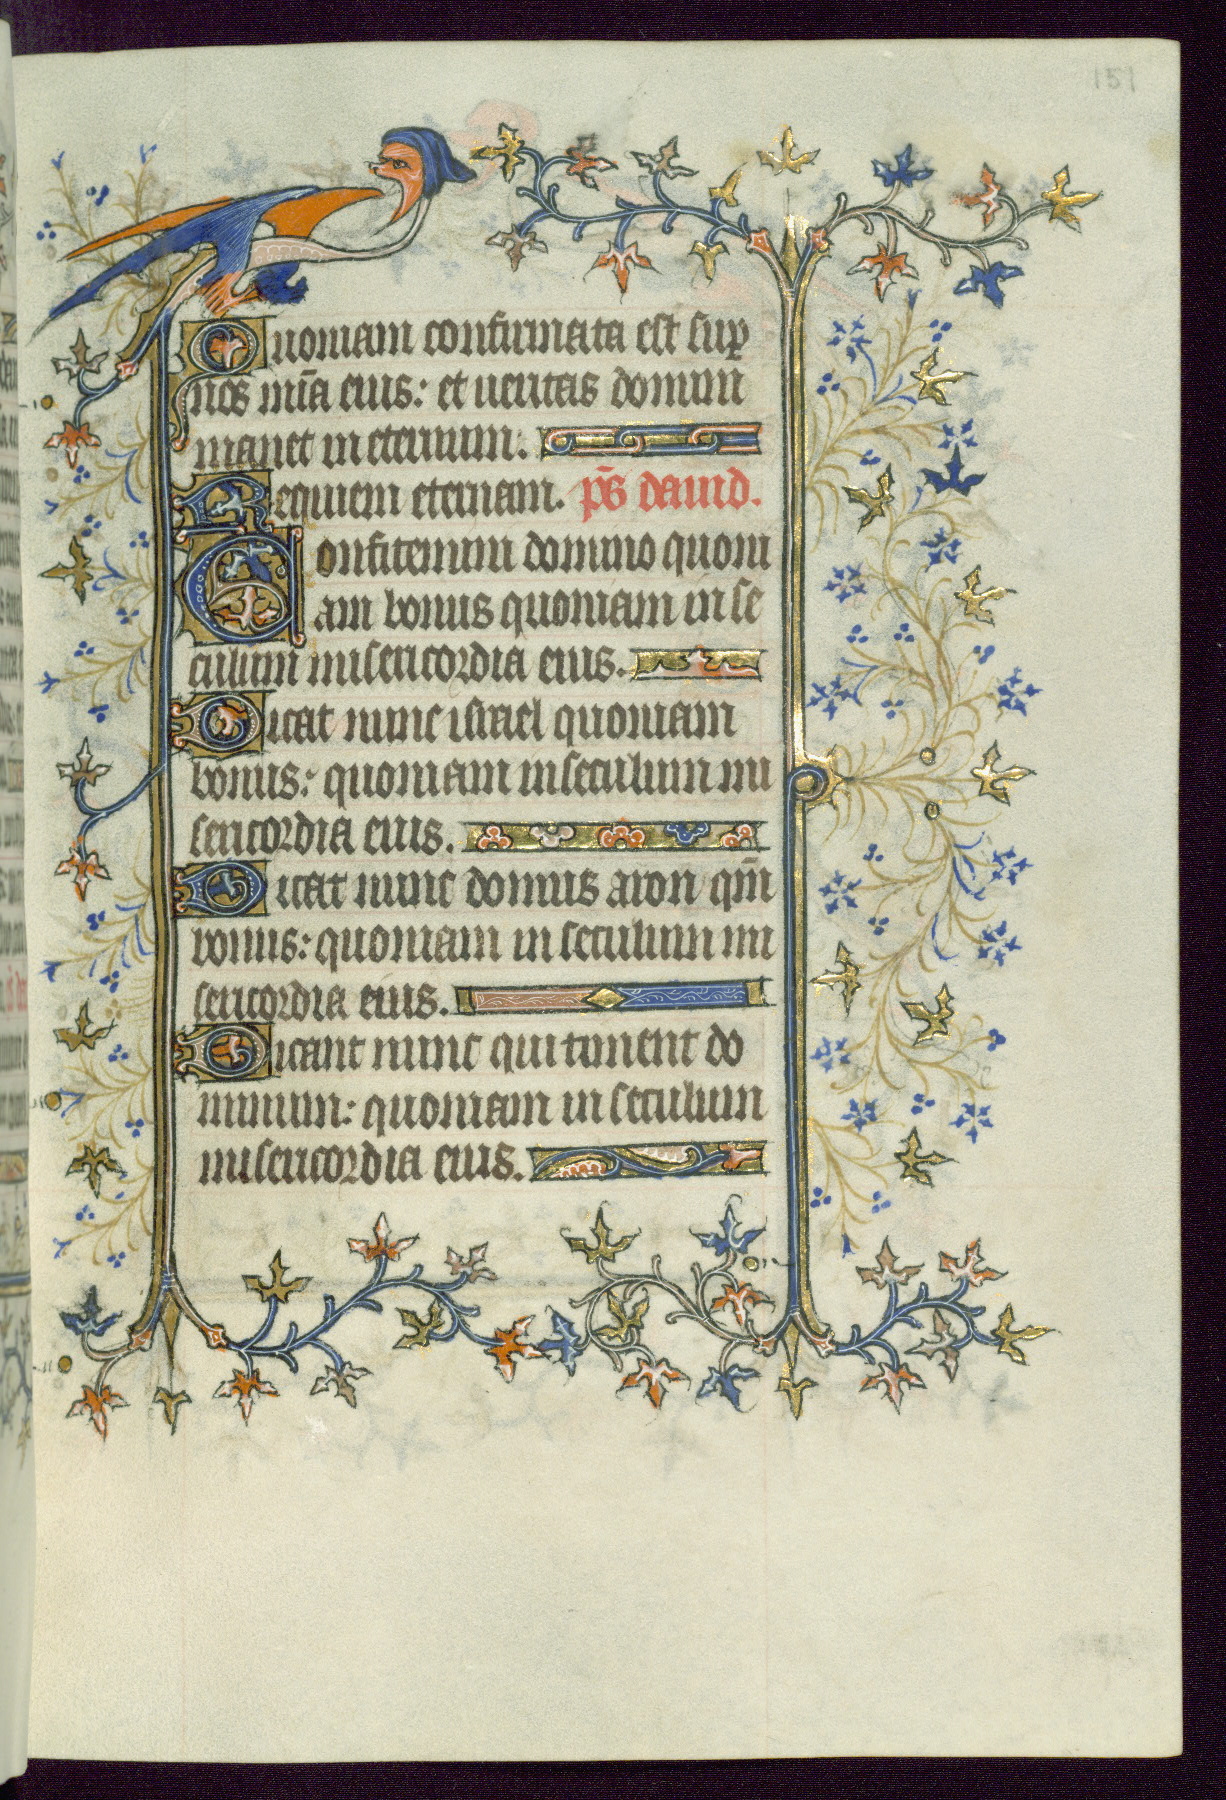 151
Quoniam confirmata est sup
nos mīa eius: et ueritas domini
manet in eternum.
Requiem eternam. ps̄ dauid.
Confitemini domino quoni
am bonus quoniam in se
culum misericordia eius.
Dicat nunc israel quoniam
bonus: quoniam in seculum mi
sericordia eius.
Dicat nunc domus aron qm̄
bonus: quoniam in seculum mi
sericordia eius.
Dicant nunc qui timent do
minum: quoniam in seculum
misericordia eius.